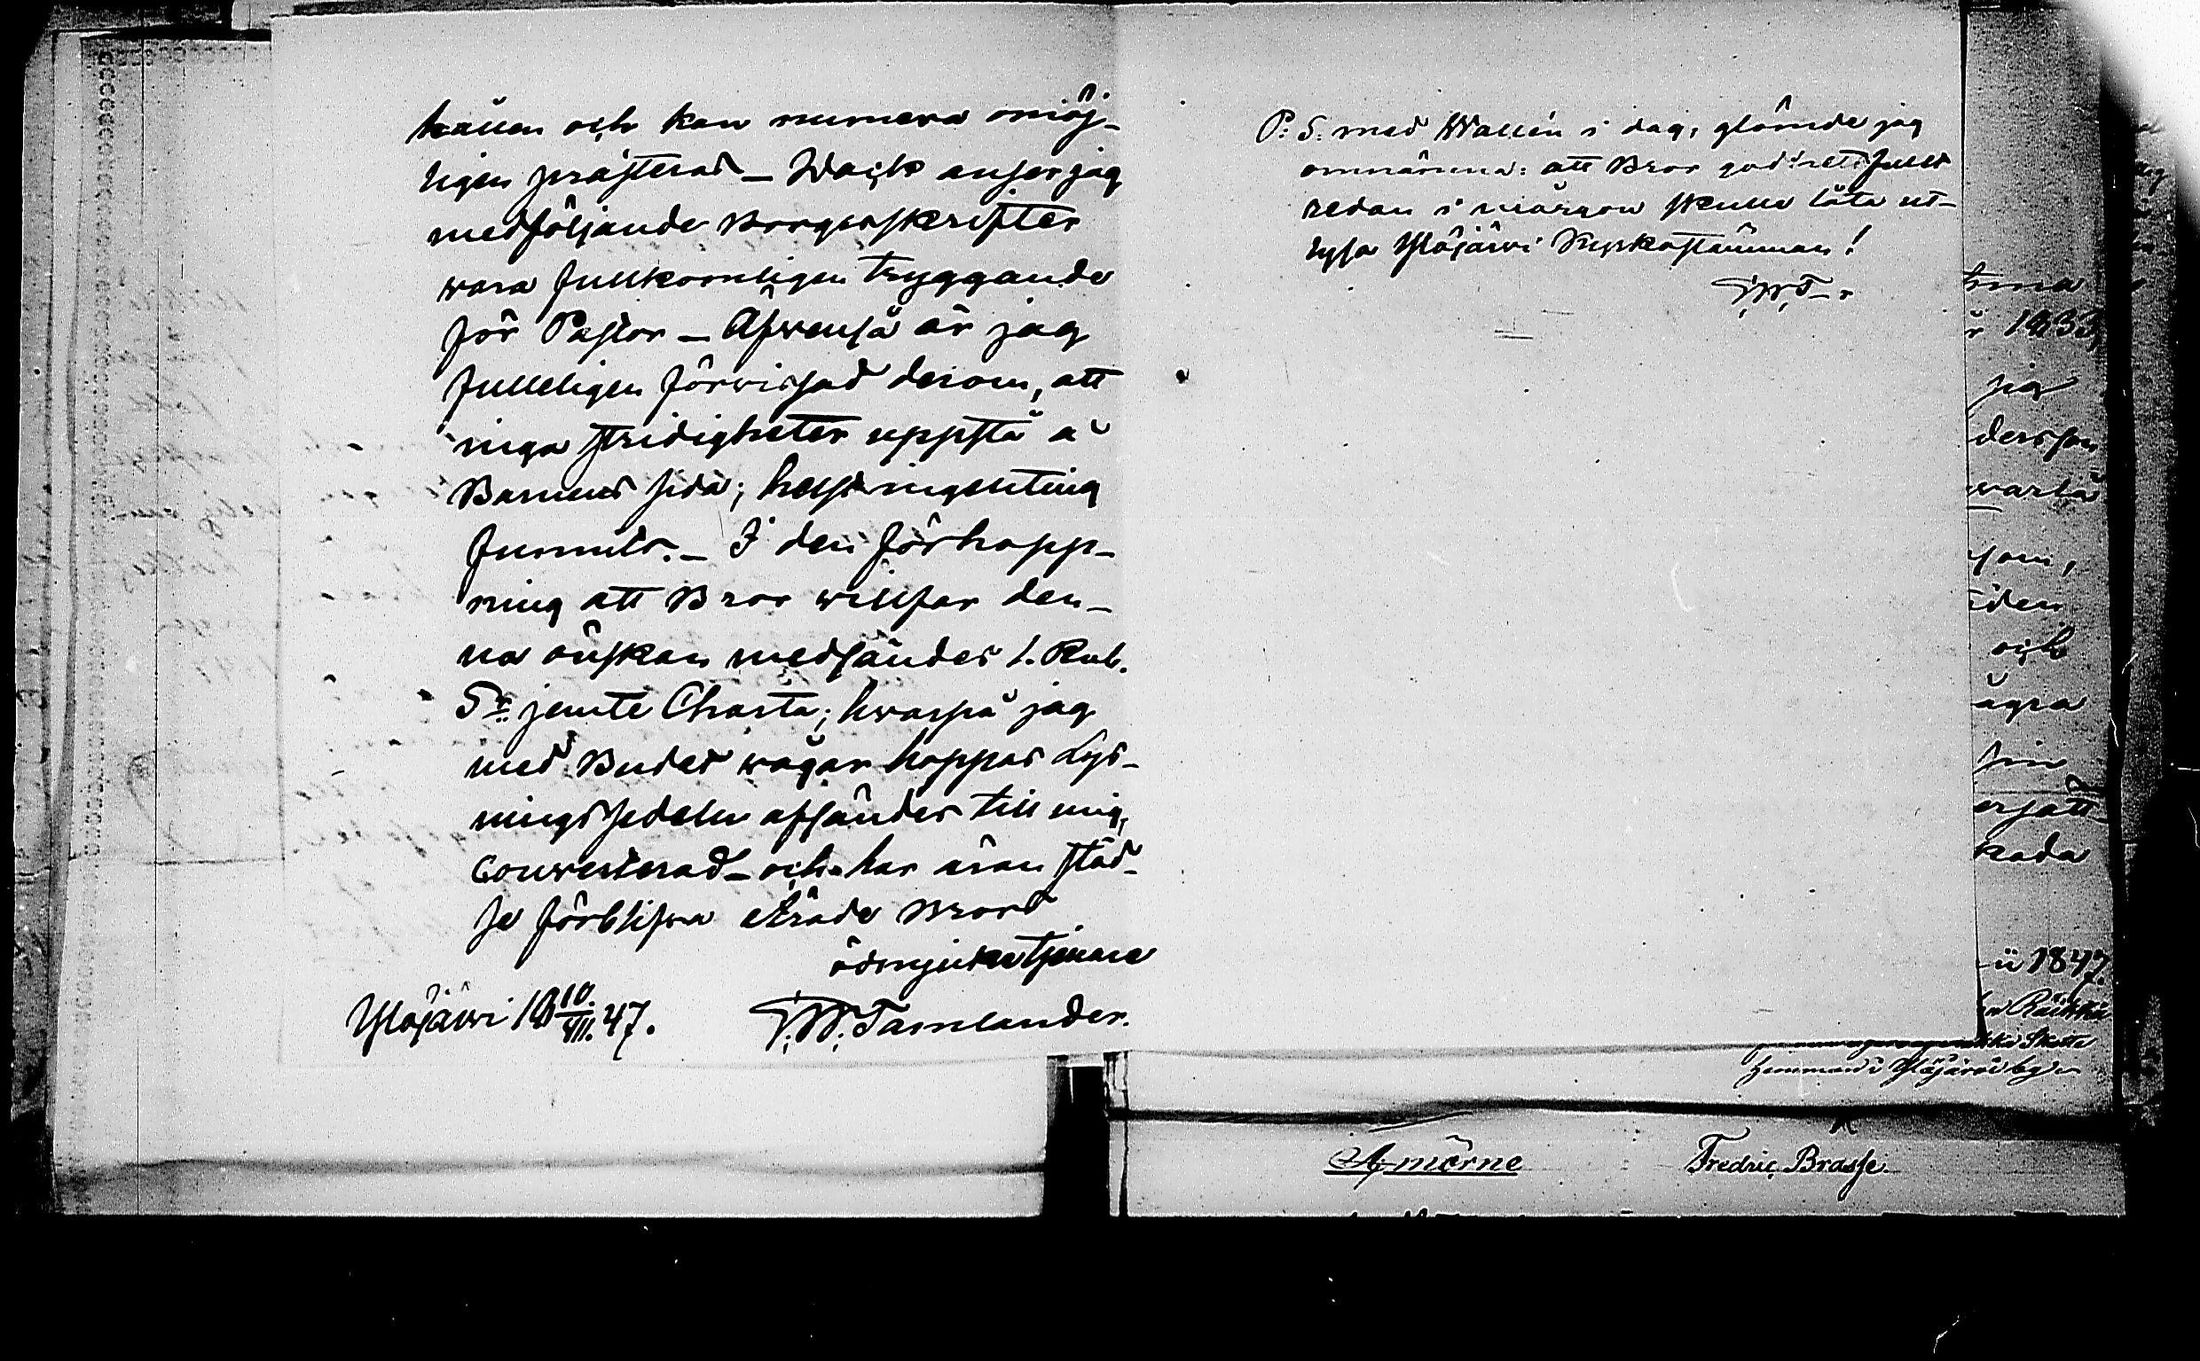 hållen och kan numera omöj-
ligen præsteras – Dock anser jag
medföljande Borgensskrifter
wara fullkomligen tryggande
för Pastor – Äfwenså är jag
fulleligen förwissad derom, att
inga stridigheter uppstå å
Barnens sida; helst ingenting
funnits. – I den förhopp-
ning att Bror willfar den-
na önskan medsändes 1. Rub.
Sr jemte Charta; hwarpå jag
med Budet wågar hoppas Lys-
ningssedeln afsändes till mig,
couverterad – och har äran städ-
se förblifwa ärade Brors
ödmjuke tjenare
Ylöjärwi 18 10/VII. 47.
G. W. Tamlander.
P. S. med Wallén i dag, glömde jag
omnämna: att Bror godhetsfullt
redan i mårgon skulle låta ut-
lysa Ylöjärwi Kyrkostämman!
G. W. T–r
tma
r 1833,
sig
dersson
warla
som,
iden
och
ågra
sin
ersätt-
kada
1847.
hemman i Ylöjärwi by
A. mörne
Fredric Brasse